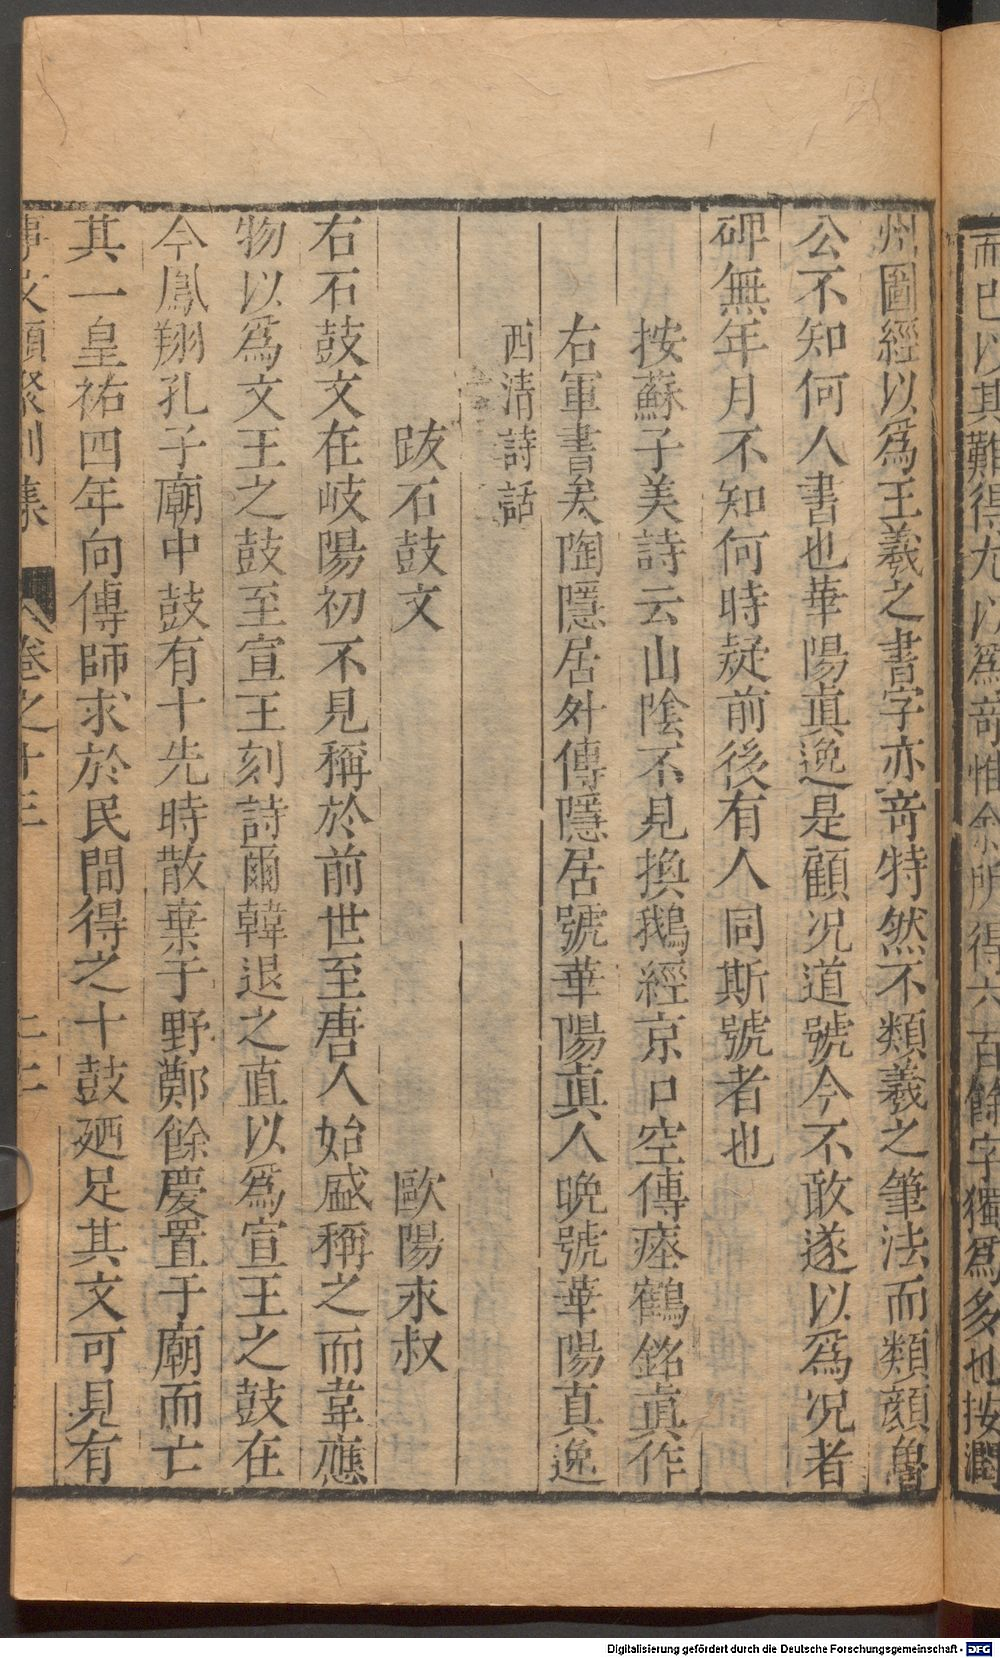 而已以其難得尤以爲奇惟余所得六百餘字獨爲多也按潤
州圖經以爲王羲之書字亦竒特然不類羲之筆法而類顔魯
公不知何人書也華陽眞逸是顧况道號今不敢遂以爲况者
碑無年月不知何時疑前後有人同斯號者也
按蘇子美詩云山陰不見換鵝經京口空傳瘞鶴銘眞作
右軍書矣陶隱居外傳隱居號華陽眞人晚號華陽真逸
西清詩話
跋石鼓文 歐陽永叔
右石鼓文在岐陽初不見稱於前世至唐人始盛稱之而韋應
物以爲文王之鼓至宣王刻詩爾韓退之直以爲宣王之鼓在
今鳳翔孔子廟中鼓有十先時散棄于野鄭餘慶置于廟而亡
其一皇祐四年向傳師求於民間得之十鼓廼足其文可見有
事文類聚別集 卷之十三
Digitalisierung gefördert durch die Deutsche Forschungsgemeinschaft - DFG